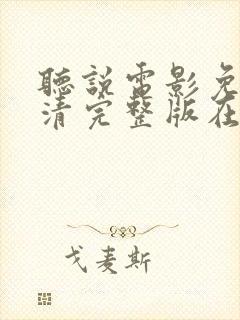 聽說電影免
清完整版在
戈麦斯